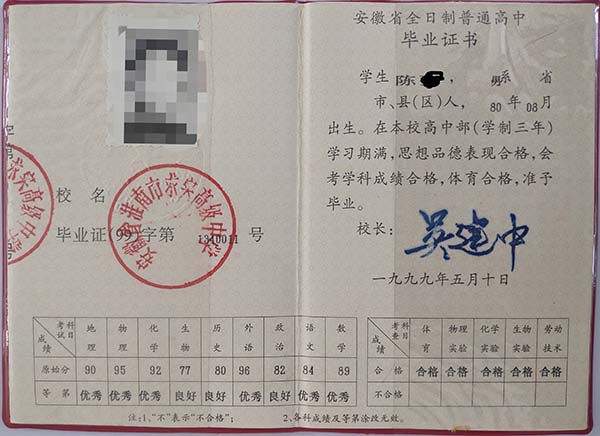 校 名
毕业证(99)字第 1340011 号
安徽省淮南市 高级中学
考试科目 成绩 地理 物理 化学 生物 历史 外语 政治 语文 数学
原始分 90 95 92 77 80 96 82 84 89
等 第 优秀 优秀 优秀 良好 良好 优秀 良好 优秀 优秀
安徽省全日制普通高中
毕业证书
学生 陈 , 男系 省
市、县(区)人, 80 年 08 月
出生。在本校高中部(学制三年)
学习期满,思想品德表现合格,会
考学科成绩合格,体育合格,准予
毕业。
校长: 吴建中
一九九九年五月十日
考查科目 成绩 体育 物理实验 化学实验 生物实验 劳动技术
合 格 合格 合格 合格 合格 合格
不合格
注:1、“不”表示“不合格”; 2、各科成绩及等第涂改无效。